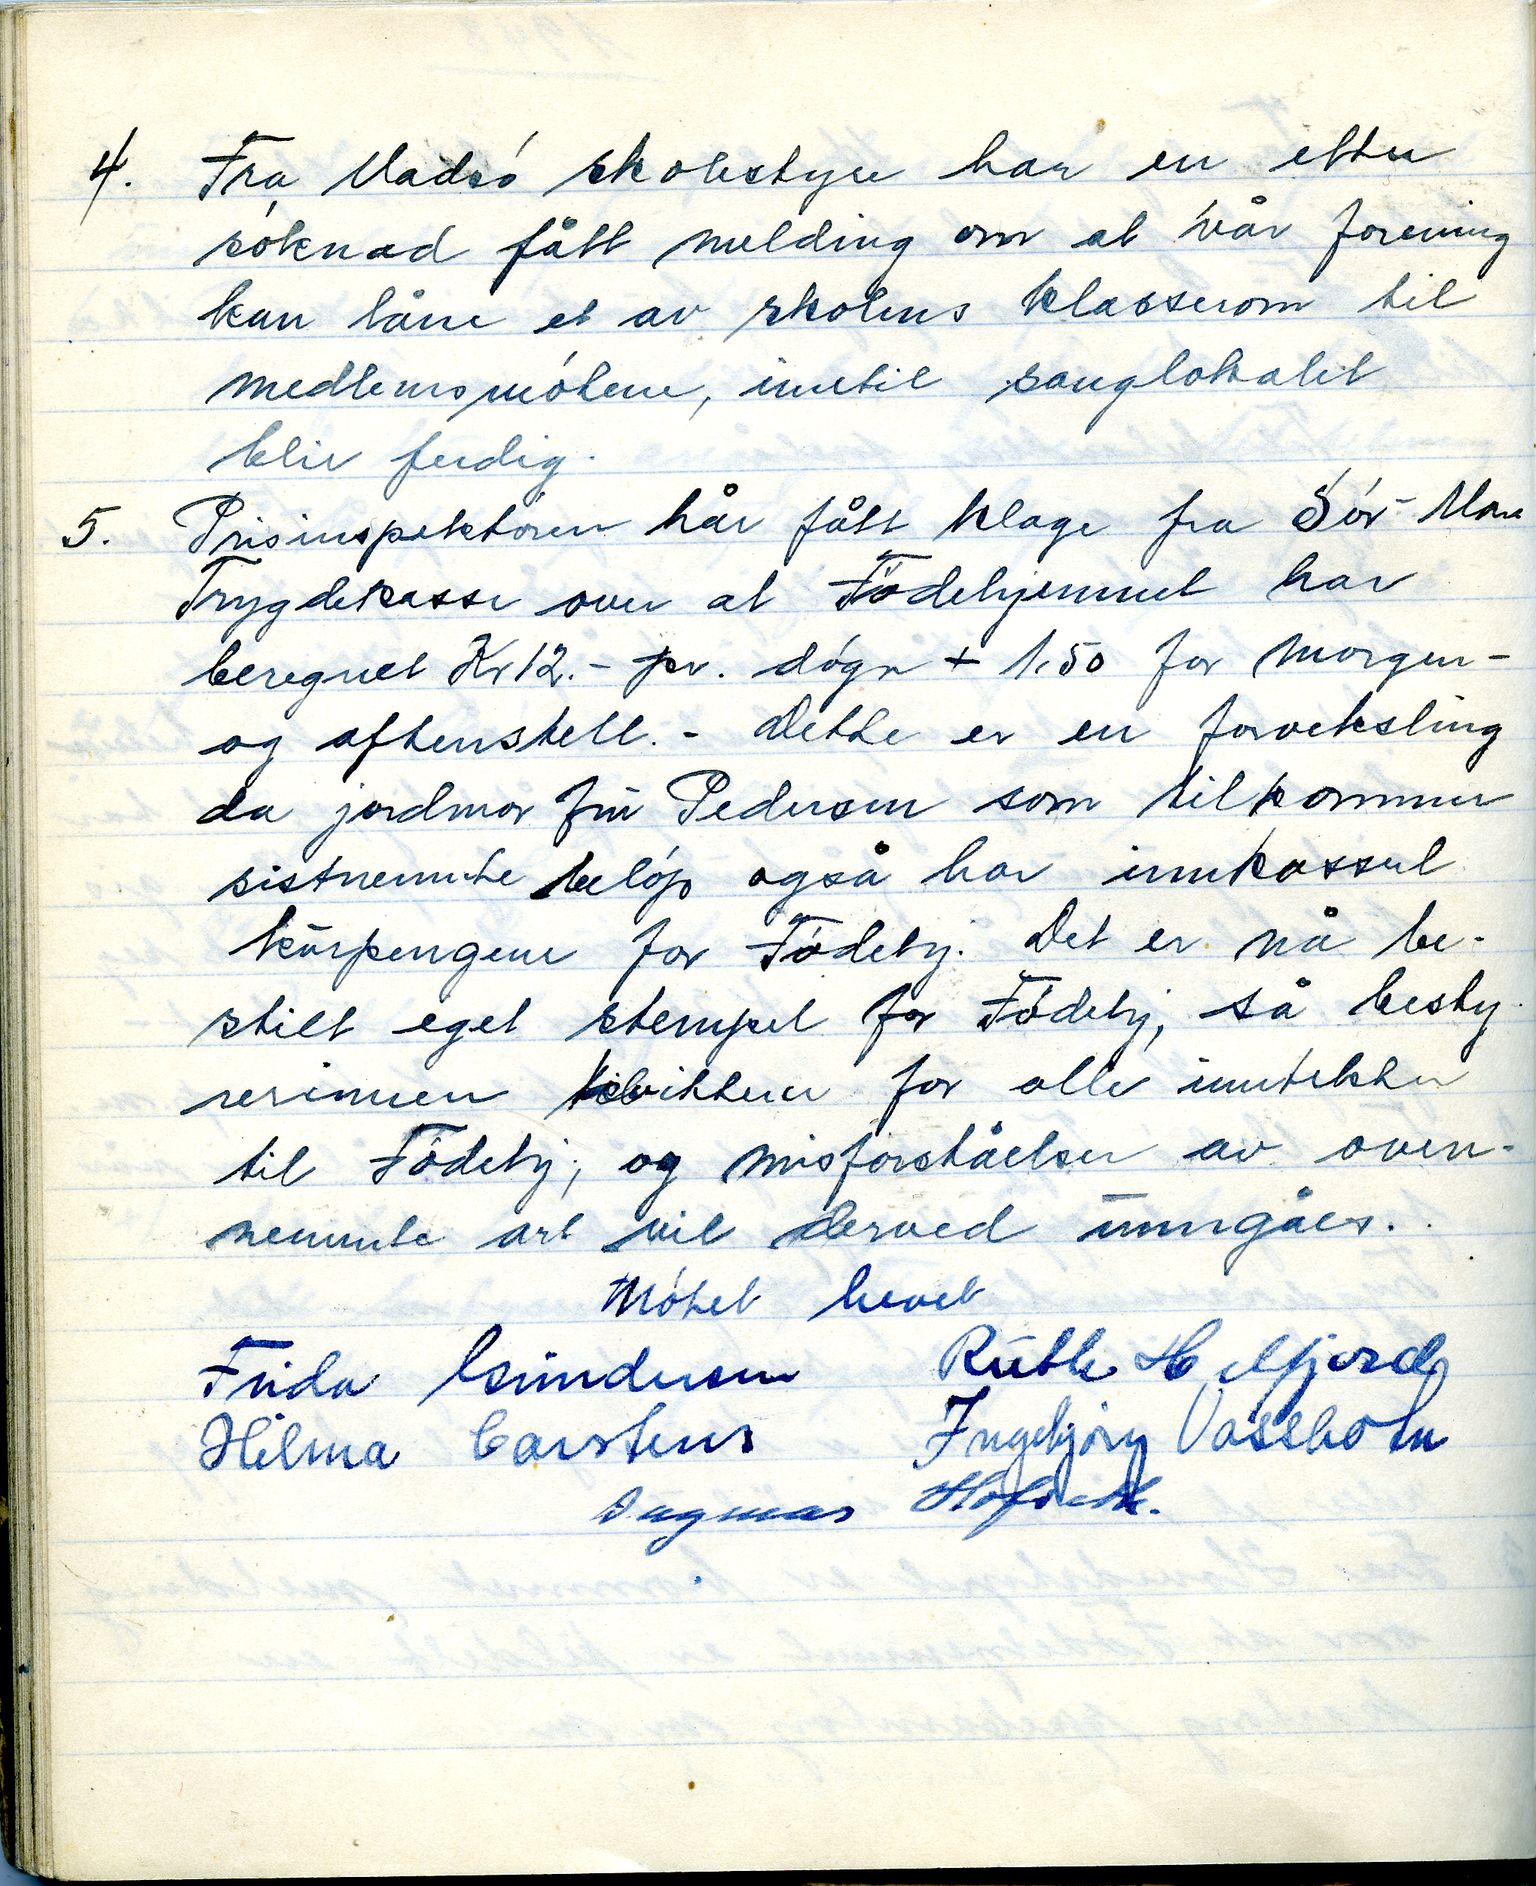 4. Fra Vadsó skolestyre har en etter
sóknad fått melding om at vår forening
kan låne et av skolens klasserom til
medlemsmótene, inntil sanglokalet
blir ferdig.
5. Prisinspektóren hår fått klage fra Sór-
Trygdekasse over at Födehjemmet har
beregnet Kr 12.- pr. dógn + 1.50 for morgen-
og aftenstell. - Dette er en forveksling
da jordmor frü Pedersen som tilkommer
sistnemnte belóp også har innkassert
kürpengene for Födehj. Det er nå be-
stilt eget stempel for Födehj, så besty-
rerinnen kvitterer for alle inntekter
til Födehj, og misforståelser av oven-
nemnte art vil derved ünngåes.
Mótet hevet
Frida Gundersen Rüth H. Mjorud
Hilma Carstens Ingebjórg Vassbotn
Dagmar